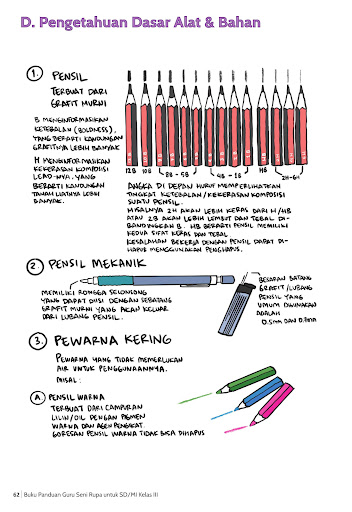 D. Pengetahuan Dasar Alat & Bahan
1. PENSIL
TERBUAT DARI
GRAFIT MURNI
B MENGINFORMASIKAN
KETEBALAN (BOLDNESS),
YANG BERARTI KANDUNGAN
GRAFITNYA LEBIH BANYAK
H MENGINFORMASIKAN
KEKERASAN KOMPOSISI
LEAD-NYA. YANG
BERARTI KANDUNGAN
TANAH LIATNYA LEBIH
BANYAK.
12B 10B 8B - 5B 4B - 2B HB 2H-6H
ANGKA DI DEPAN HURUF MEMPERLIHATKAN
TINGKAT KETEBALAN/KEKERASAN KOMPOSISI
SUATU PENSIL.
MISALNYA 2H AKAN LEBIH KERAS DARI H/HB
ATAU 2B AKAN LEBIH LEMBUT DAN TEBAL DI-
BANDINGKAN B. HB BERARTI PENSIL MEMILIKI
KEDUA SIFAT KERAS DAN TEBAL.
KESALAHAN BEKERJA DENGAN PENSIL DAPAT DI-
HAPUS MENGGUNAKAN PENGHAPUS.
2. PENSIL MEKANIK
MEMILIKI RONGGA SELONGSONG
YANG DAPAT DIISI DENGAN SEBATANG
GRAFIT MURNI YANG AKAN KELUAR
DARI LUBANG PENSIL.
BESARAN BATANG
GRAFIT/LUBANG
PENSIL YANG
UMUM DIGUNAKAN
ADALAH
0.5MM DAN 0.7MM
3. PEWARNA KERING
PEWARNA YANG TIDAK MEMERLUKAN
AIR UNTUK PENGGUNAANNYA.
MISAL:
A PENSIL WARNA
TERBUAT DARI CAMPURAN
LILIN/OIL DENGAN PIGMEN
WARNA DAN AGEN PENGIKAT.
GORESAN PENSIL WARNA TIDAK BISA DIHAPUS
62 | Buku Panduan Guru Seni Rupa untuk SD/MI Kelas III